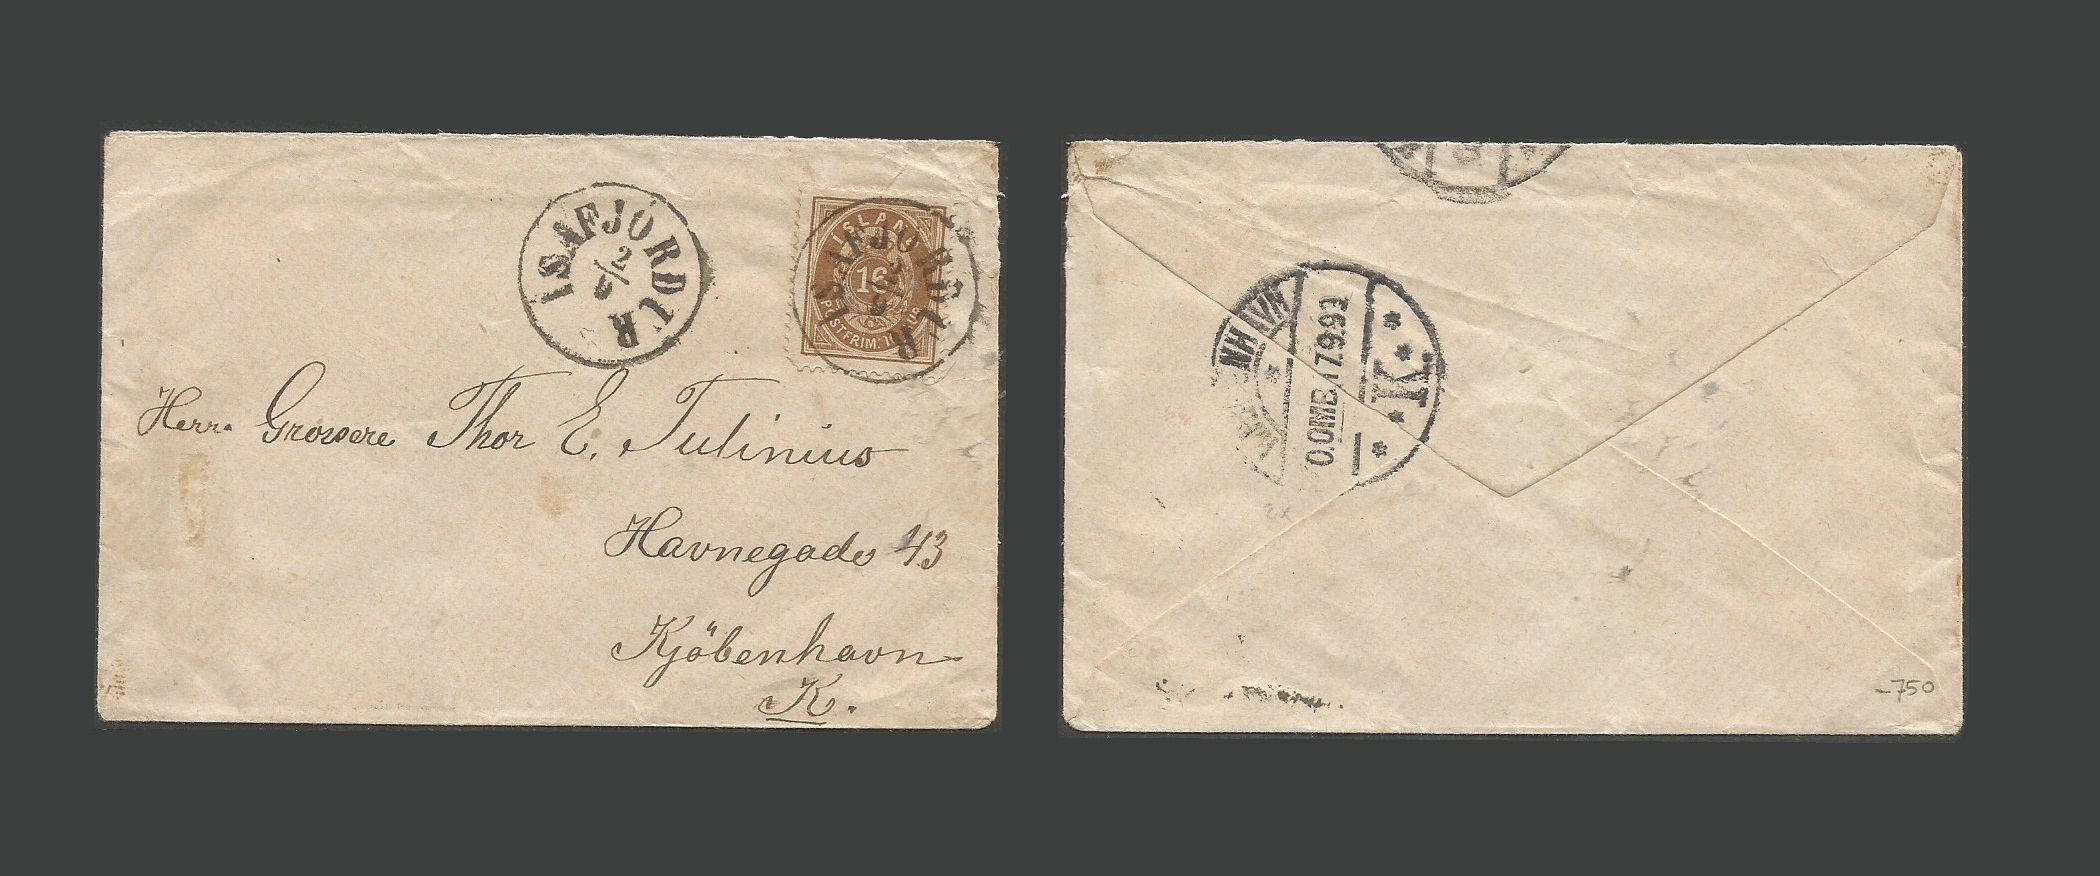 ISAFJÖRDUR
2/9
ISLAND
16
POSTFRIM:
ISAFJÖRDUR
Herr Grosserer Thor E. Tulinius
Havnegade 43
Kjöbenhavn
K.
K.
0.OMB. 17.9.93
-750